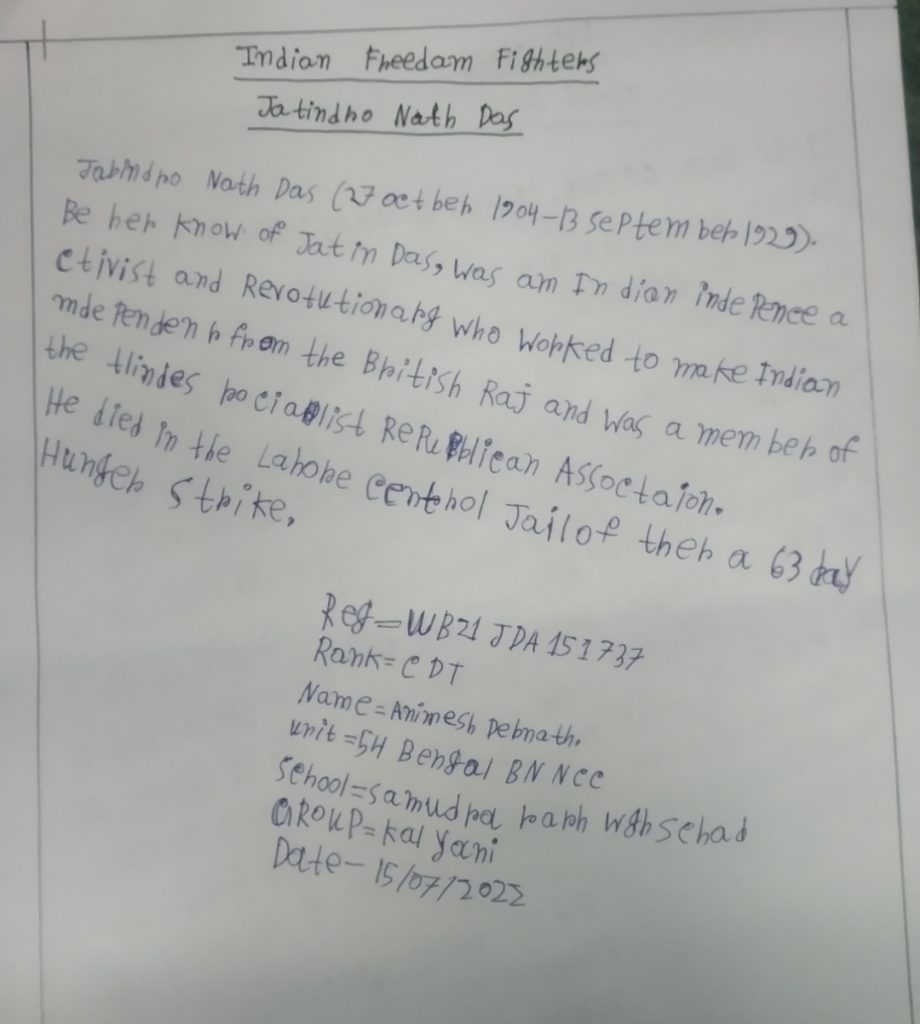 Indian Freedam Fighters
Jatindro Nath Das
Jabindro Nath Das (27 octber 1904-13 September 1929).
Be her know of Jatin Das, was am Indian indepence a
ctivist and Revotutionarg who worked to make Indian
independenr from the British Raj and was a member of
the Hindes rociablist Republican Assoctaion.
He died in the Lahore centrol Jail of ther a 63 day
Hunger Strike.
Reg=WB21 JDA 151737
Rank=CDT
Name=Animesh Debnath.
unit=54 Bengal BN NCC
School=Samudra
GROUP=Kalyani
Date-15/07/2022